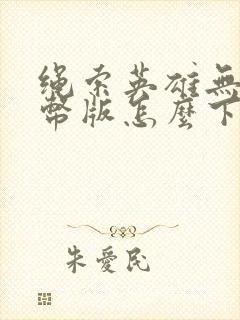 绳索英雄無
幣版怎麼下
朱愛民